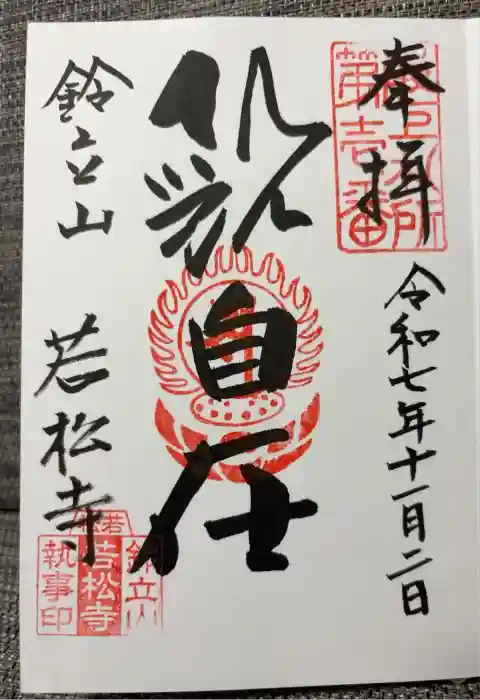 奉拝
第壱番
令和七年十一月二日
観自在
鈴立山
若松寺
鈴立山
若松寺
執事印